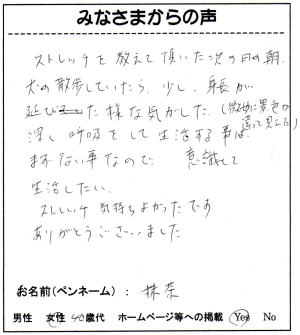 みなさまからの声
ストレッチを教えて頂いた次の日の朝、
犬の散歩していたら、少し、身長が
延びた様な気がした。(微妙に景色が
違って見えた)
深く呼吸をして生活する事は
まずない事なので 意識して
生活したい。
ストレッチ気持ちよかったです
ありがとうございました
お名前(ペンネーム) : 抹茶
男性 女性 40歳代 ホームページ等への掲載 Yes No